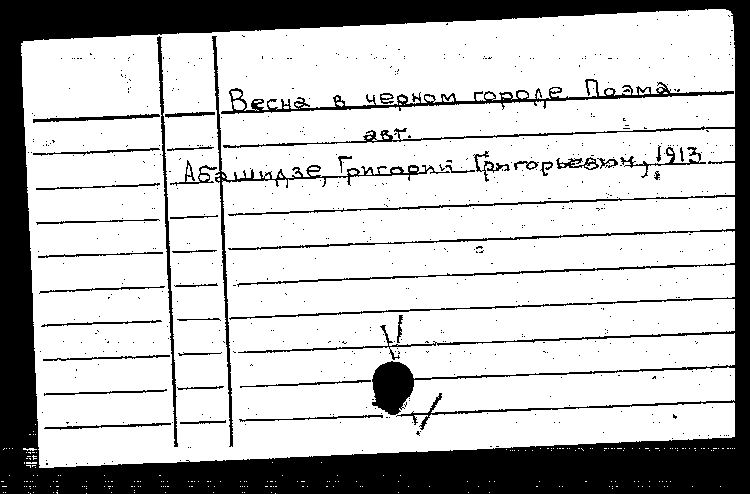 Весна в черном городе Поэма.
авт.
Абашидзе, Григорий Григорьевич, 1913